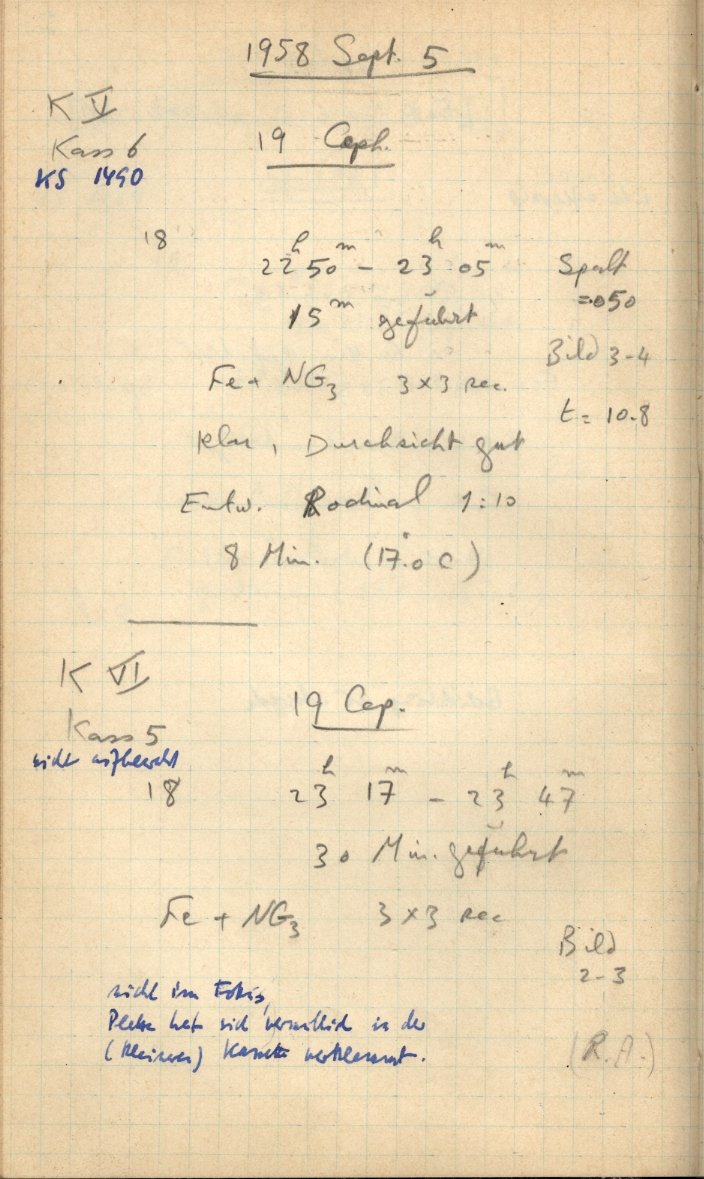 1958 Sept. 5
K V
Kass 6
KS 1490
19 Ceph.
18
22h 50m - 23h 05m
Spalt
=.050
15m geführt
Bild 3-4
Fe + NG3 3x3 sec.
t = 10.8
klar, Durchsicht gut
Entw. Rodinal 1:10
8 Min. (17.°0 C)
K VI
Kass 5
nicht aufbewahrt
19 Cep.
18
23h 17m - 23h 47m
30 Min. geführt
Fe + NG3 3x3 sec
Bild
2-3
nicht im Fokus,
Platte hat sich vermutlich in der
(kleineren) Kassette verklemmt.
(R.A.)